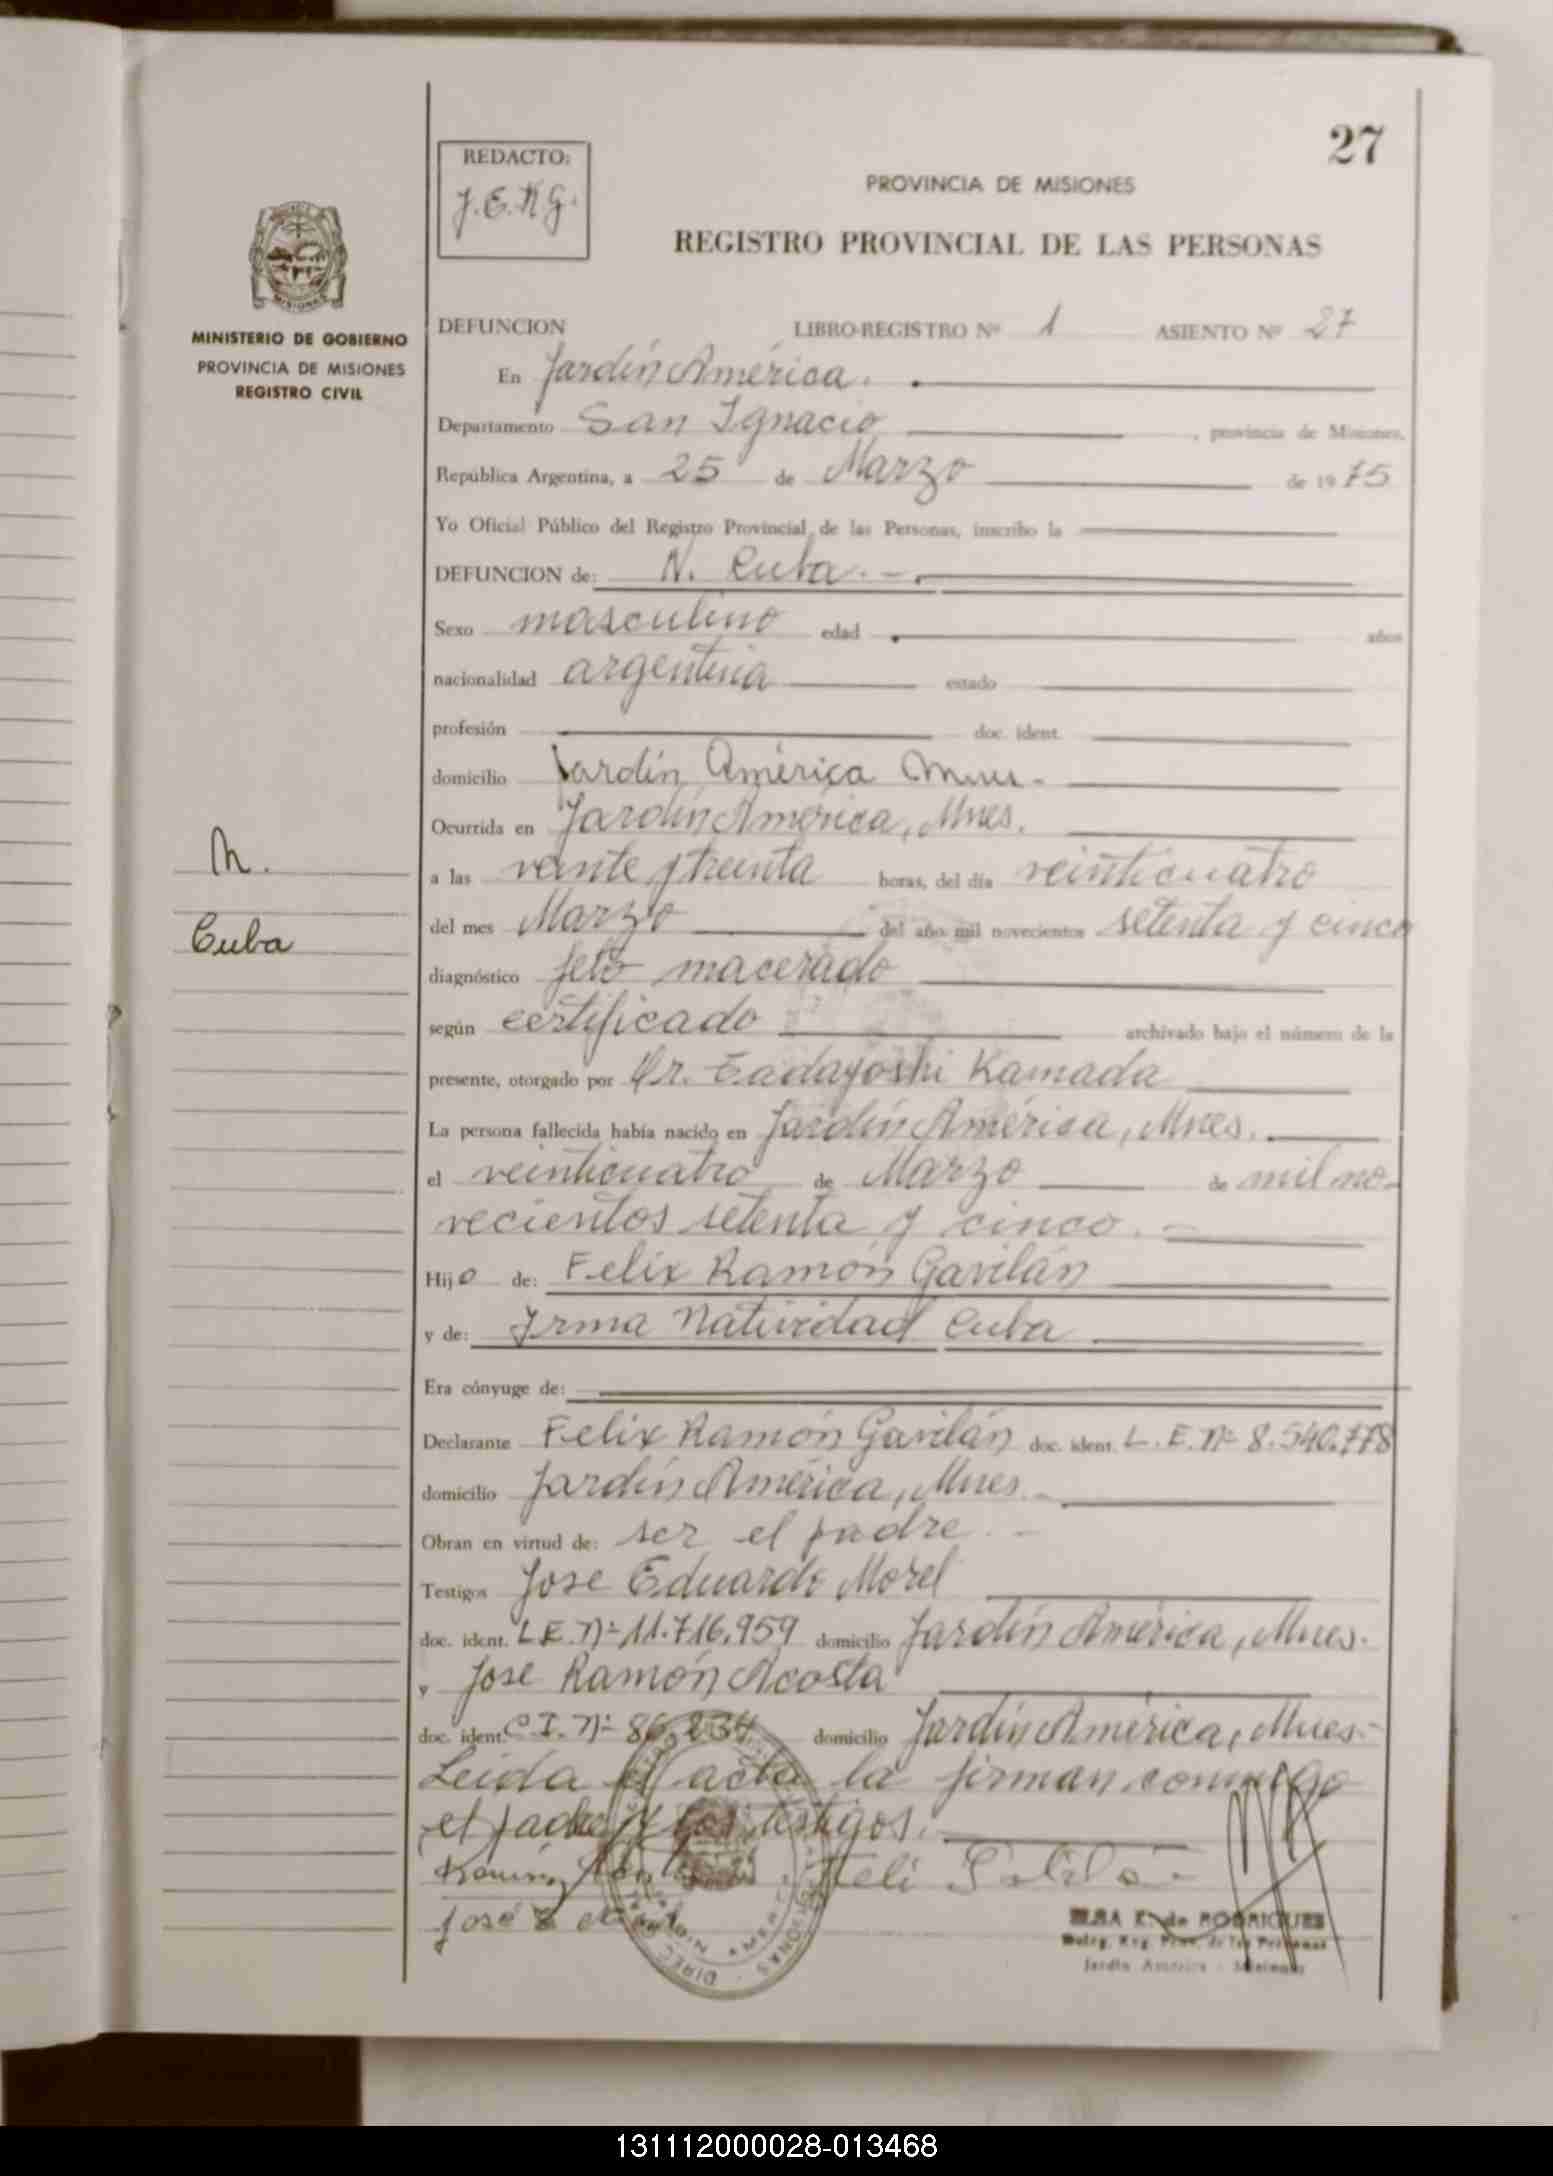 27
REDACTO:
J.E.N.G.
PROVINCIA DE MISIONES
REGISTRO PROVINCIAL DE LAS PERSONAS
MISIONES
MINISTERIO DE GOBIERNO
PROVINCIA DE MISIONES
REGISTRO CIVIL
DEFUNCION LIBRO-REGISTRO Nº 1 ASIENTO Nº 27
En Jardín América.
Departamento San Ignacio, provincia de Misiones,
República Argentina, a 25 de Marzo de 1975
Yo Oficial Público del Registro Provincial de las Personas, inscribo la
DEFUNCION de: N. Cuba.-
Sexo masculino edad años
nacionalidad argentina estado
profesión doc. ident.
domicilio Jardín América Mnes-
Ocurrida en Jardín América, Mnes.
N.
a las veinte y treinta horas, del día veinticuatro
Cuba
del mes Marzo del año mil novecientos setenta y cinco
diagnóstico feto macerado
según certificado archivado bajo el número de la
presente, otorgado por Dr. Tadayoshi Kamada
La persona fallecida había nacido en Jardín América, Mnes.
el veinticuatro de Marzo de mil no-
vecientos setenta y cinco.-
Hijo de: Felix Ramón Gavilán
y de: Irma Natividad Cuba
Era cónyuge de:
Declarante Felix Ramón Gavilán doc. ident. L.E. Nº 8.540.778
domicilio Jardín América, Mnes.-
Obran en virtud de: ser el padre.-
Testigos Jose Eduardo Morel
doc. ident. L.E. Nº 11.716.959 domicilio Jardín América, Mnes.
y Jose Ramón Acosta
doc. ident. C.I. Nº 86.234 domicilio Jardín América, Mnes.-
Leída el acta la firman conmigo
el padre y los testigos.
José E
ELSA K. de RODRIGUES
Deleg. Reg. Prov. de las Personas
Jardín América - Misiones
131112000028-013468